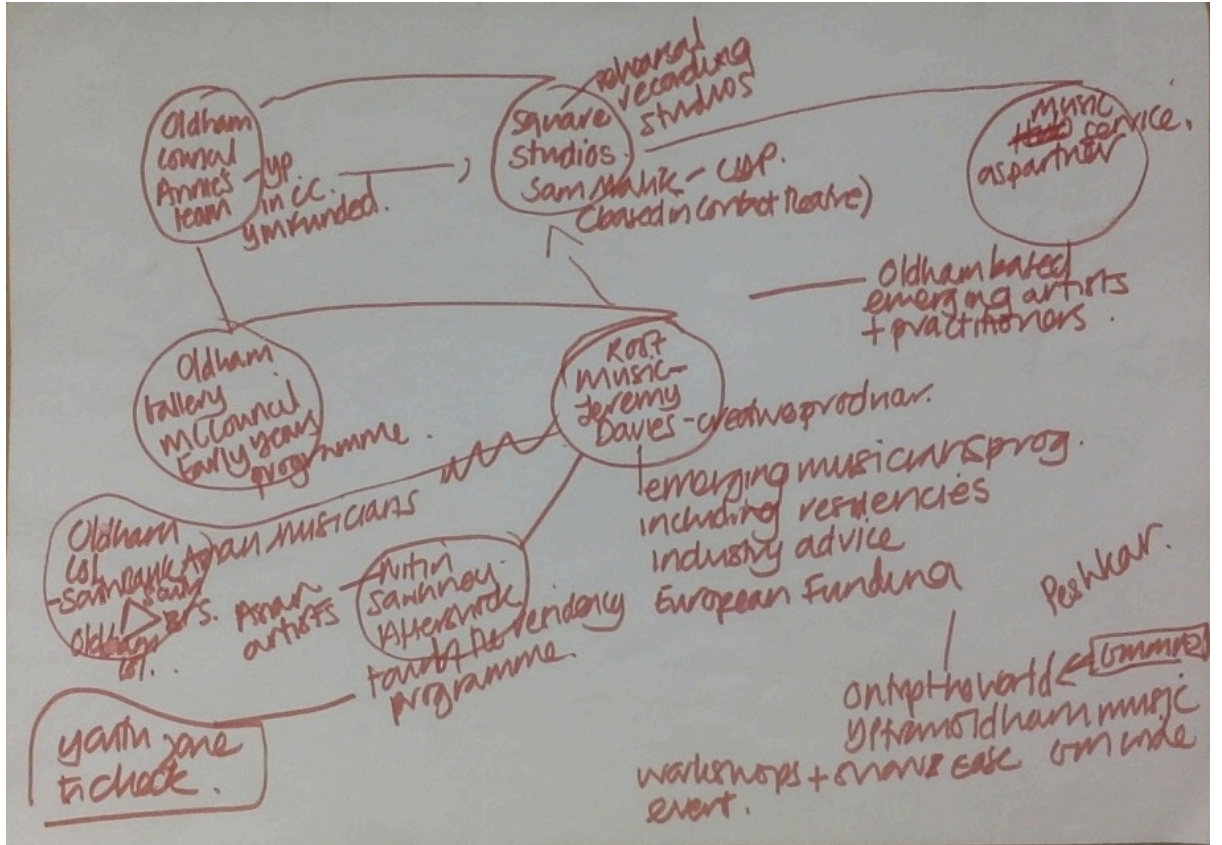 Oldham
Council
Annie's
team
- yp.
in CC.
ymfunded.
Square
Studios.
rehearsal
recording
studios
Sam Malik - CYP.
(based in Contact Theatre)
music
service.
as partner
Oldham based
emerging artists
+ practitioners.
Oldham
Gallery
Council
Early years
programme.
Music -
Jeremy
Davies - creative producer.
emerging musicians prog.
including residencies
industry advice
European Funding
Oldham
Col
Asian musicians
Asian
artists
Nitin
Sawhney.
Aftershock
residency
programme.
youth zone
to check.
Peshkar.
on top the world
yp from oldham music
workshops + showcase
event.